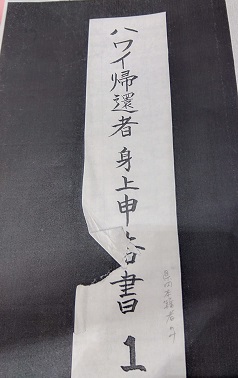 ハワイ帰還者身上申告書
1